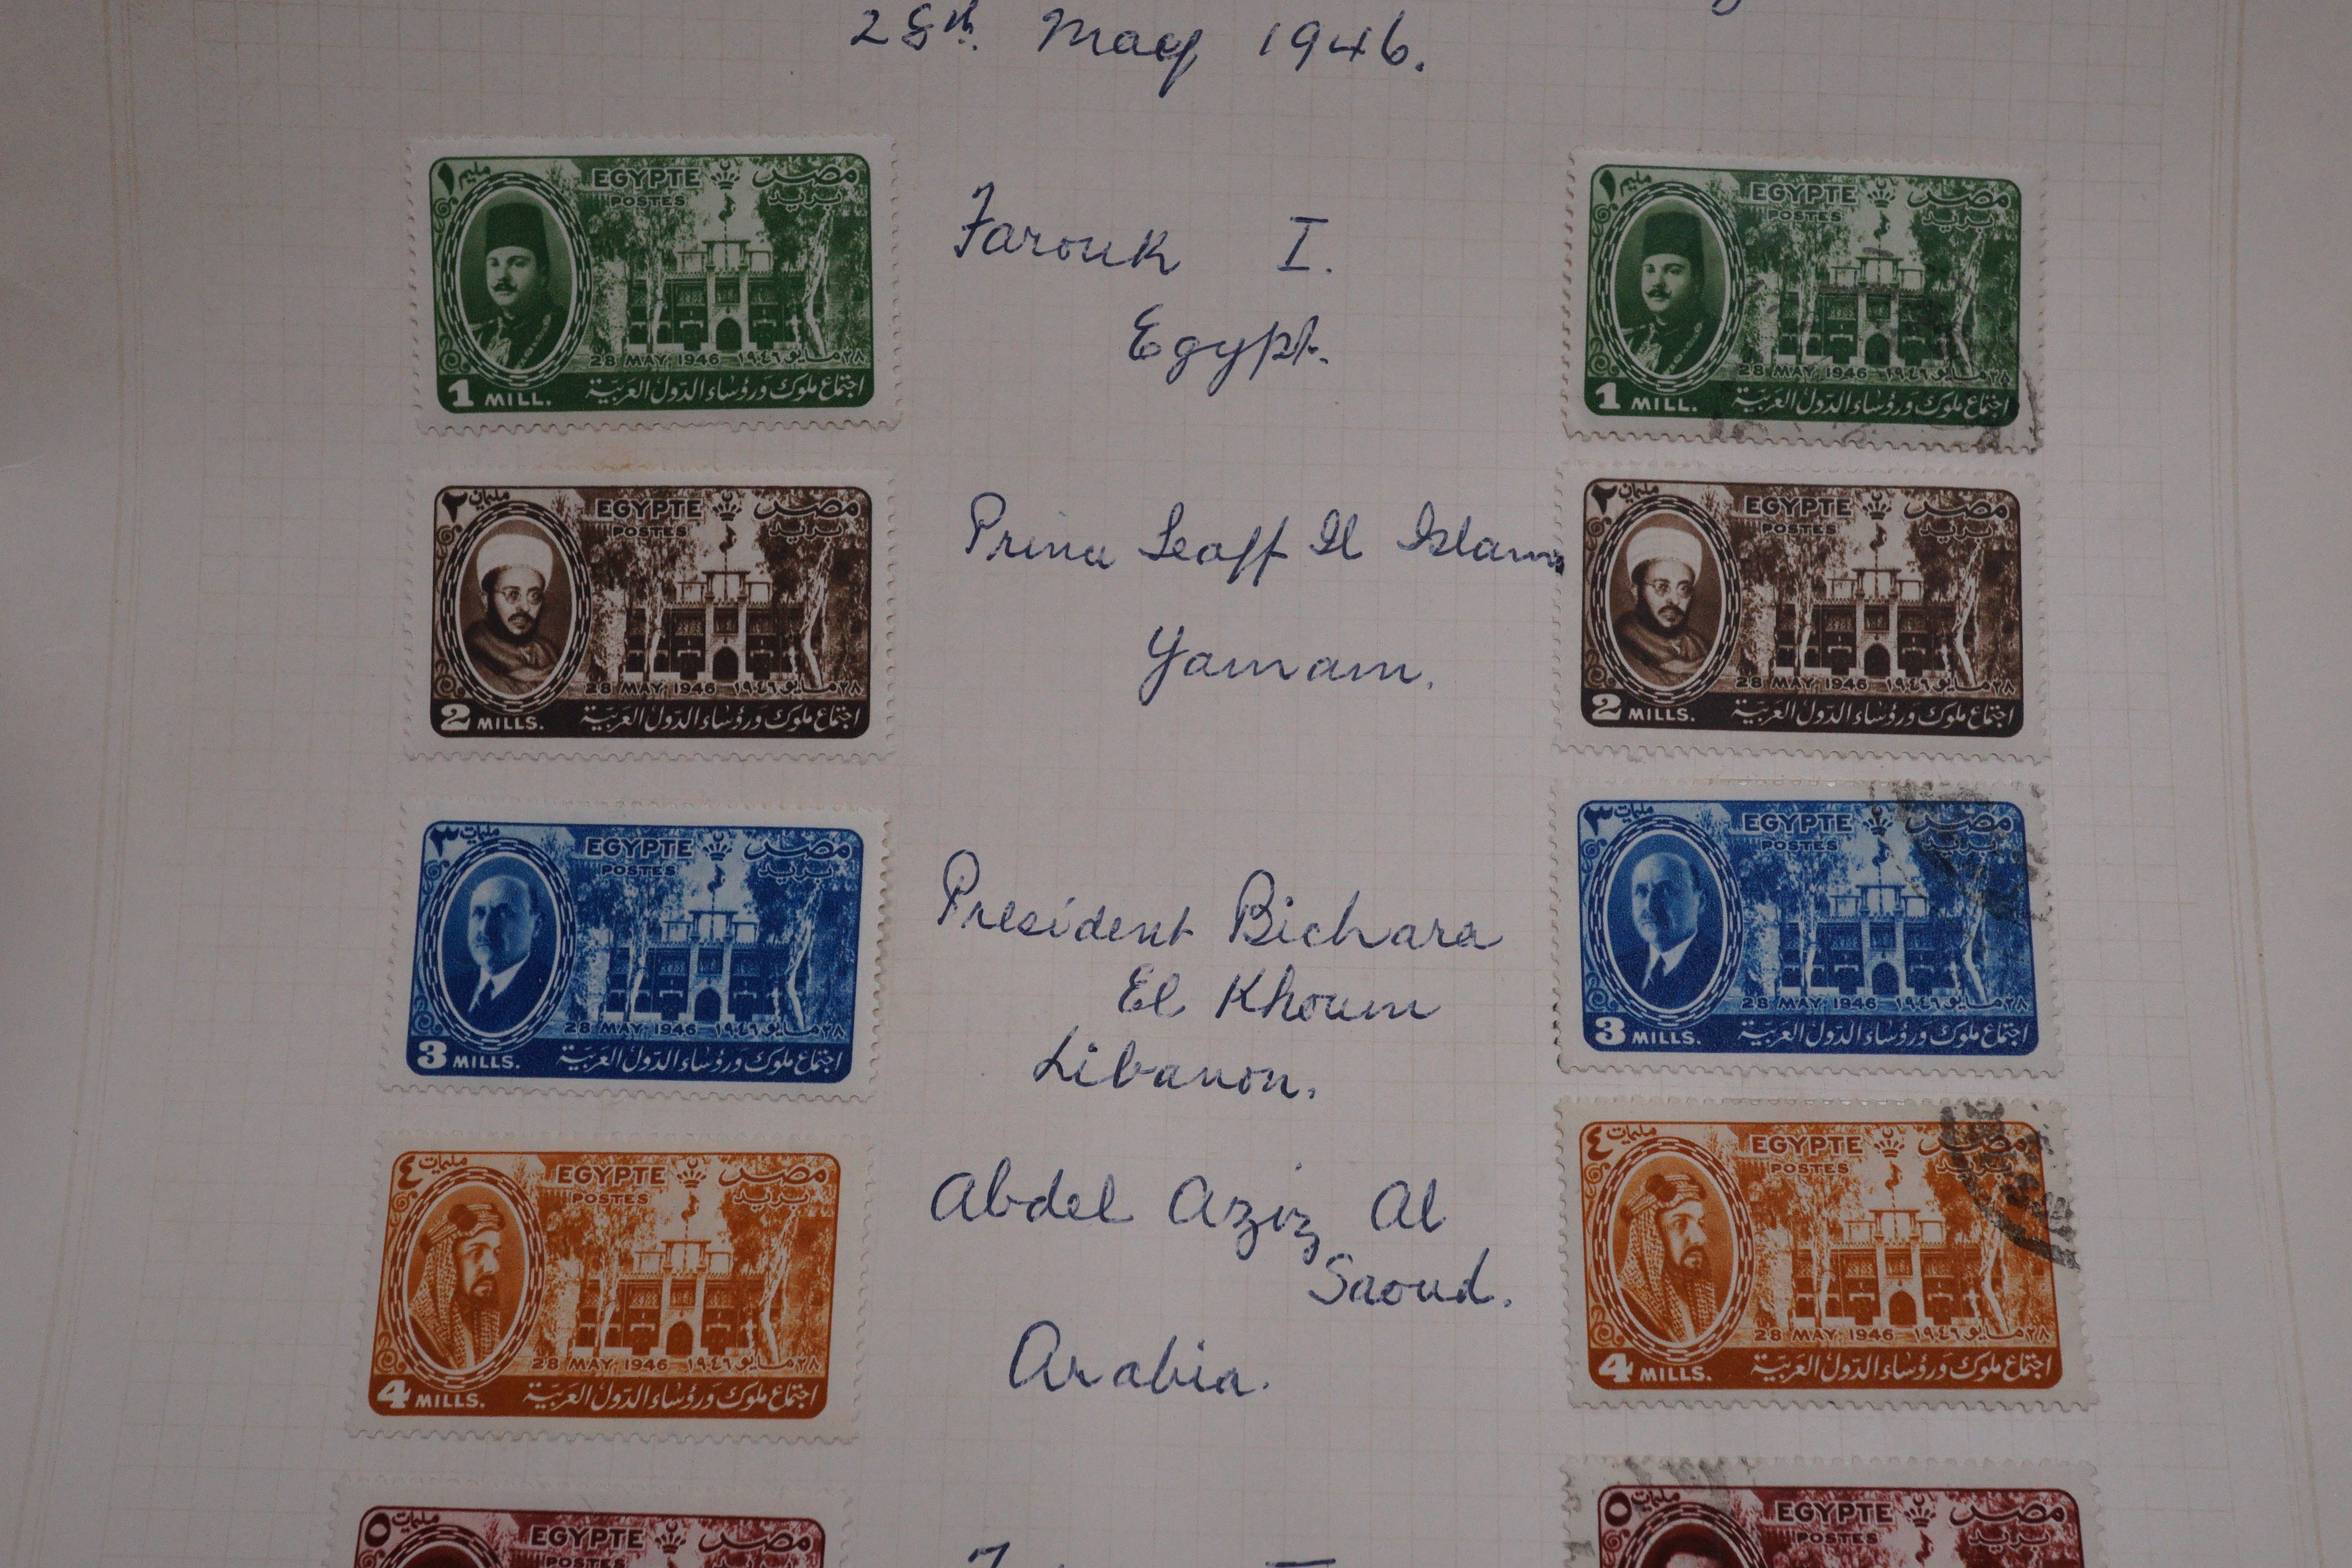 28th. May 1946.
١ مليم
EGYPTE مصر
POSTES بريد
28 MAY 1946 ٢٨ مايو ١٩٤٦
1 MILL. اجتماع ملوك ورؤساء الدول العربية
Farouk I.
Egypt.
١ مليم
EGYPTE مصر
POSTES بريد
28 MAY 1946 ٢٨ مايو ١٩٤٦
1 MILL. اجتماع ملوك ورؤساء الدول العربية
٢ مليمان
EGYPTE مصر
POSTES بريد
28 MAY 1946 ٢٨ مايو ١٩٤٦
2 MILLS. اجتماع ملوك ورؤساء الدول العربية
Prince Seaff Il Islam
Yamam.
٢ مليمان
EGYPTE مصر
POSTES بريد
28 MAY 1946 ٢٨ مايو ١٩٤٦
2 MILLS. اجتماع ملوك ورؤساء الدول العربية
٣ مليمات
EGYPTE مصر
POSTES بريد
28 MAY 1946 ٢٨ مايو ١٩٤٦
3 MILLS. اجتماع ملوك ورؤساء الدول العربية
President Bichara
El Khoum
Libanon.
٣ مليمات
EGYPTE مصر
POSTES بريد
28 MAY 1946 ٢٨ مايو ١٩٤٦
3 MILLS. اجتماع ملوك ورؤساء الدول العربية
٤ مليمات
EGYPTE مصر
POSTES بريد
28 MAY 1946 ٢٨ مايو ١٩٤٦
4 MILLS. اجتماع ملوك ورؤساء الدول العربية
Abdel Aziz Al
Saoud.
Arabia.
٤ مليمات
EGYPTE مصر
POSTES بريد
28 MAY 1946 ٢٨ مايو ١٩٤٦
4 MILLS. اجتماع ملوك ورؤساء الدول العربية
٥ مليمات
EGYPTE مصر
POSTES بريد
٥ مليمات
EGYPTE مصر
POSTES بريد